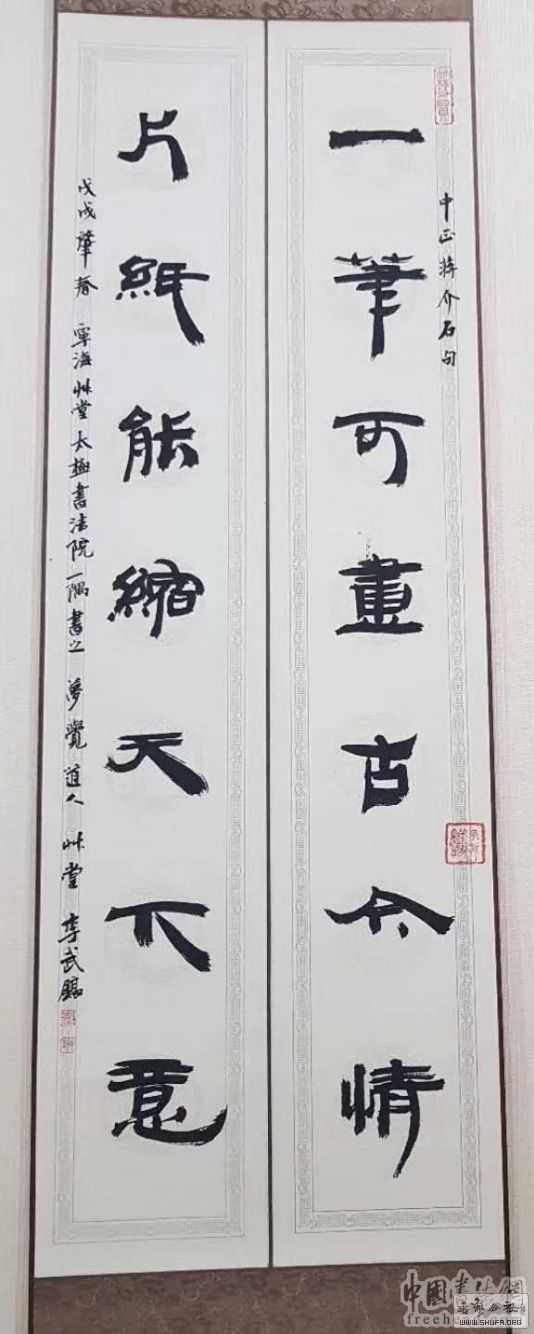 中正蒋介石句
一筆可畫古今情
片紙能縮天下意
戊戌肇春 寧海艸堂太極書法院一隅書之 夢覺道人 艸堂 李武
中國書法網
freehead
書家公社
WWW.SHUFA.ORG